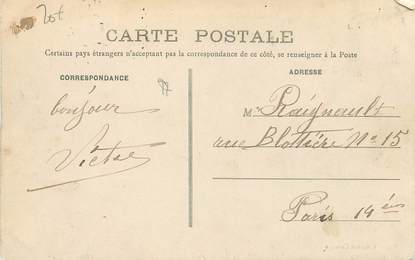 20f
CARTE POSTALE
Certains pays étrangers n'acceptant pas la correspondance de ce côté, se renseigner à la Poste
CORRESPONDANCE
ADRESSE
bonjour
Victor
M. Raignault
rue Blottière No 15
Paris 14